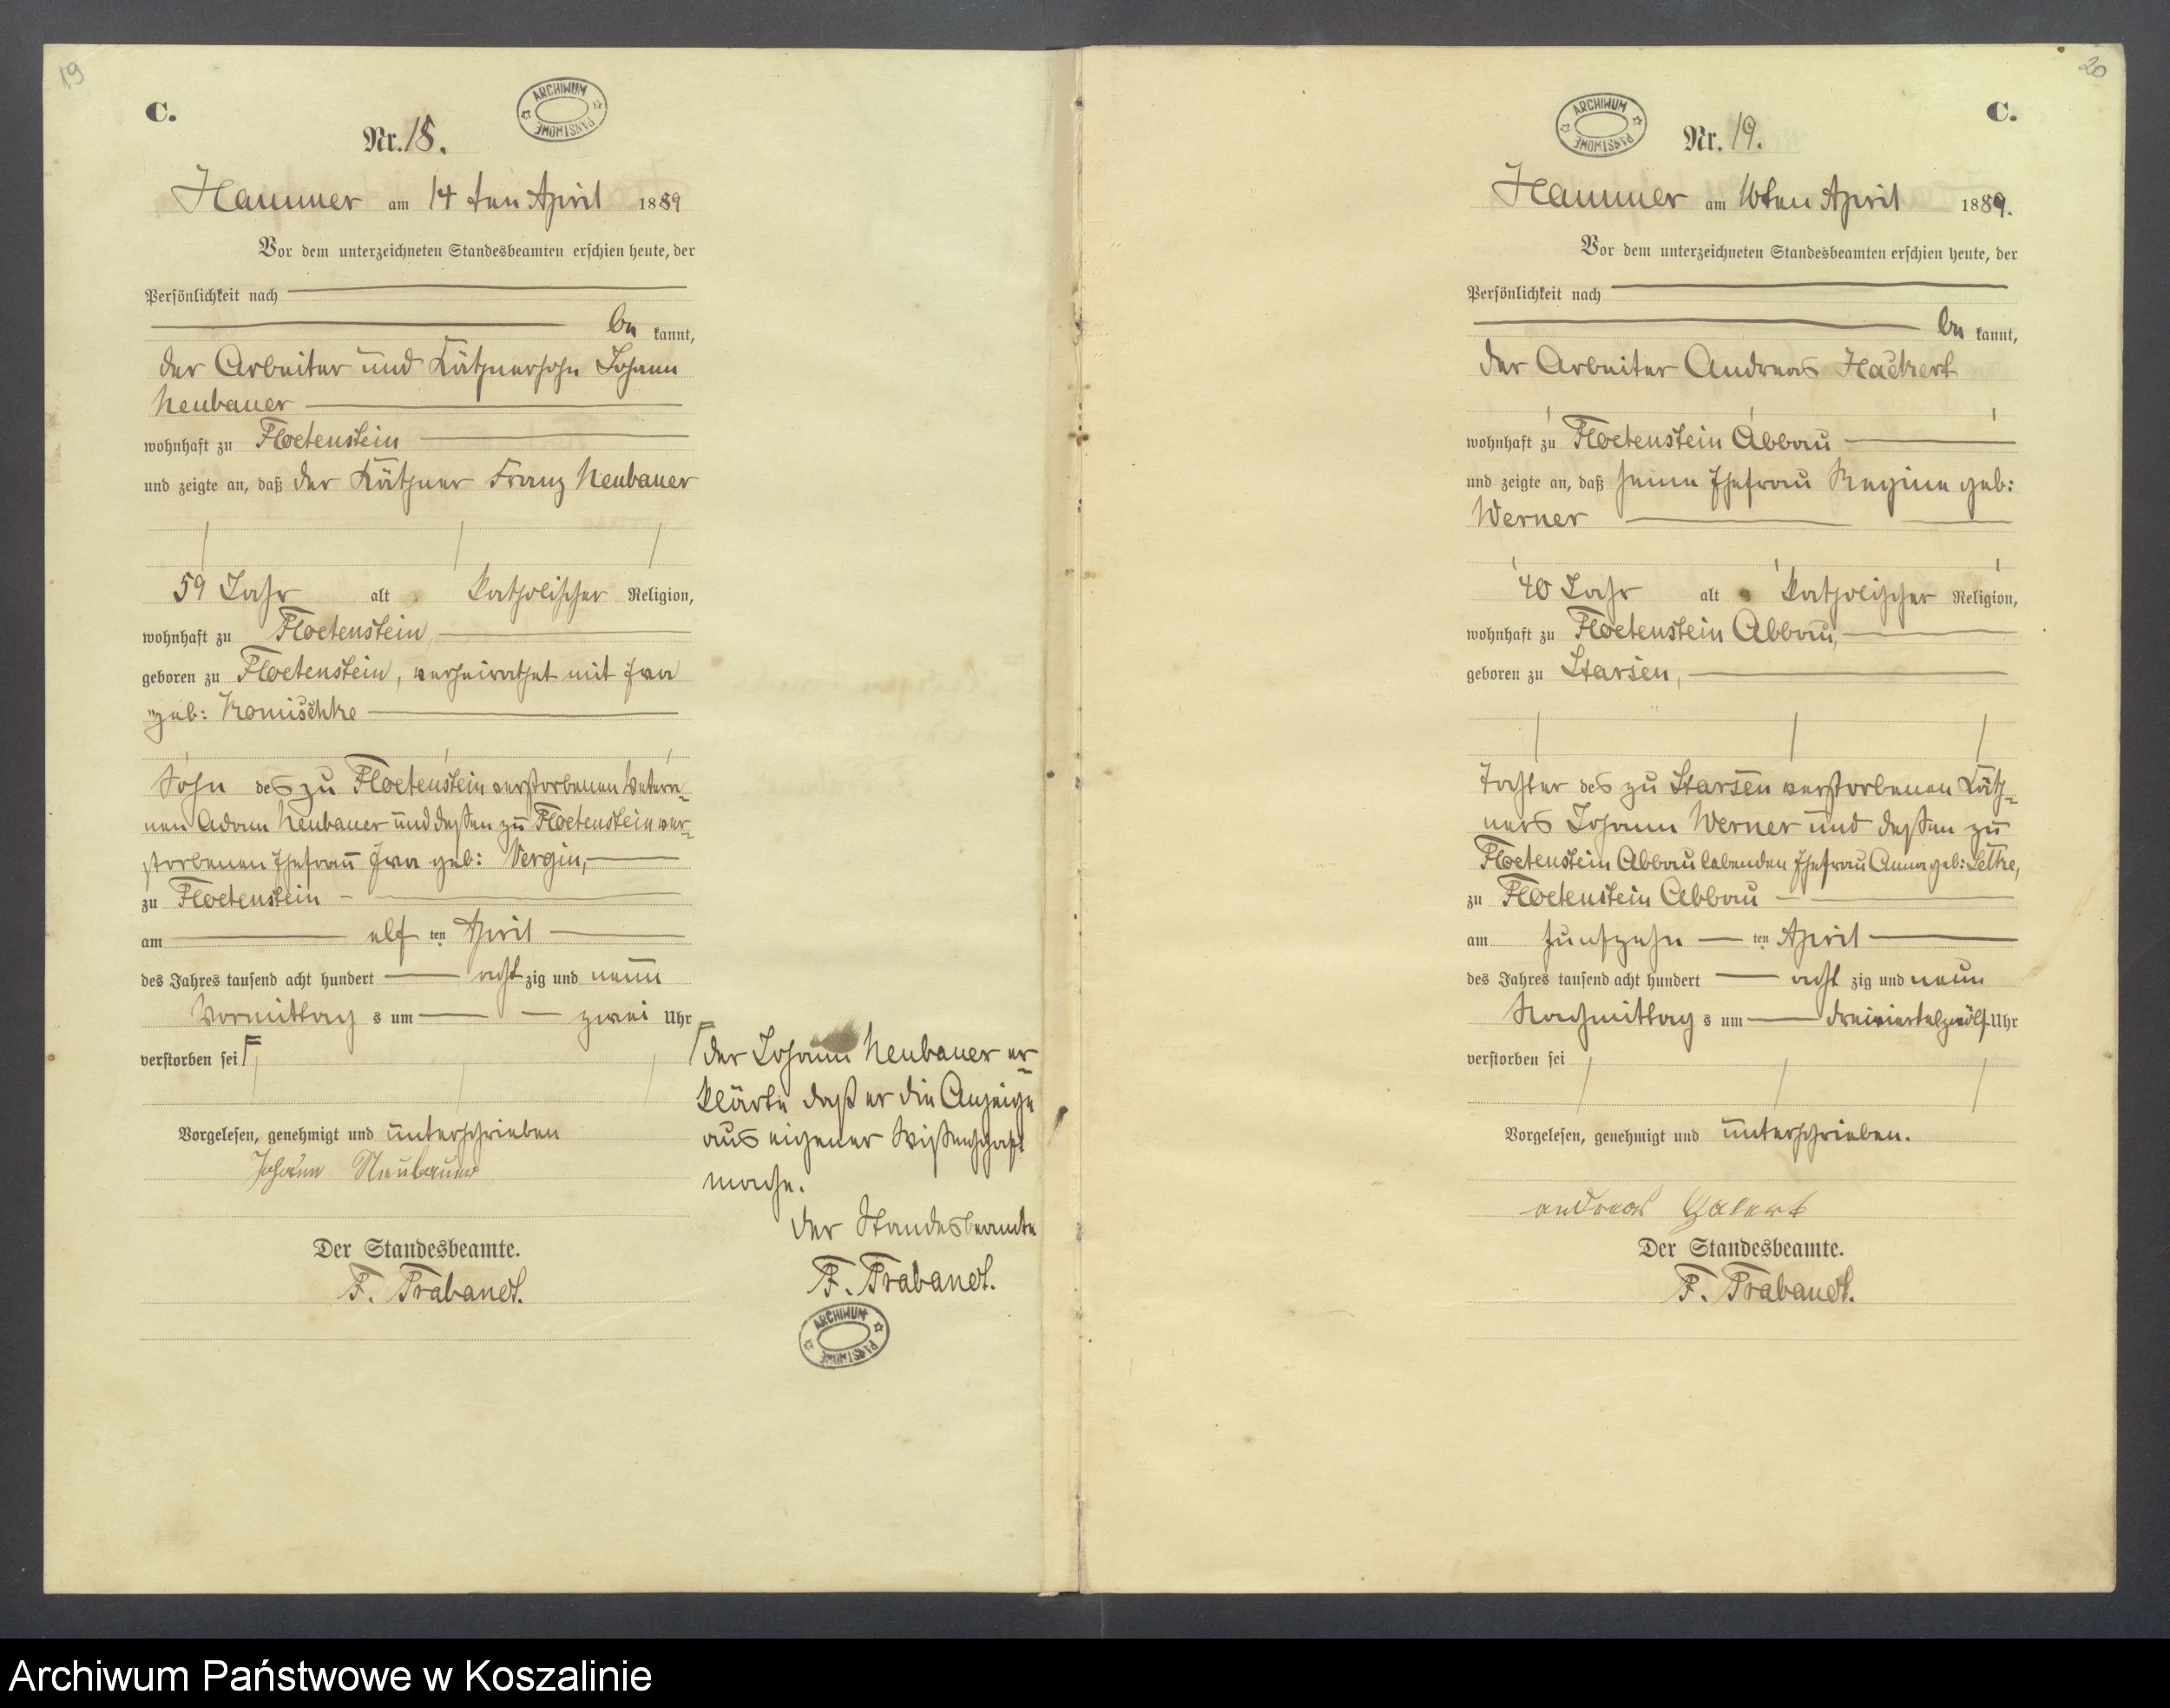 19
C.
ARCHIWUM PAŃSTWOWE
Nr. 18.
Hammer am 14 ten April 1889
Vor dem unterzeichneten Standesbeamten erschien heute, der
Persönlichkeit nach
be kannt,
der Arbeiter und Käthnersohn Johann
Neubauer
wohnhaft zu Floetenstein
und zeigte an, daß der Käthner Franz Neubauer
59 Jahr alt katholischer Religion,
wohnhaft zu Floetenstein
geboren zu Floetenstein, verheirathet mit Eva
geb: Komischke
Sohn des zu Floetenstein verstorbenen Vetera-
nen Adam Neubauer und dessen zu Floetenstein ver-
storbenen Ehefrau Eva geb: Vergin,
zu Floetenstein
am elf ten April
des Jahres tausend acht hundert acht zig und neun
Vormittag s um zwei Uhr
verstorben sei
Vorgelesen, genehmigt und unterschrieben
Johann Neubauer
Der Standesbeamte.
F. Trabandt.
der Johann Neubauer er-
klärte daß er die Anzeige
aus eigener Wissenschaft
mache.
der Standesbeamte
F. Trabandt.
ARCHIWUM PAŃSTWOWE
20
C.
ARCHIWUM PAŃSTWOWE
Nr. 19.
Hammer am 16ten April 1889.
Vor dem unterzeichneten Standesbeamten erschien heute, der
Persönlichkeit nach
be kannt,
der Arbeiter Andreas Hackert
wohnhaft zu Floetenstein Abbau
und zeigte an, daß seine Ehefrau Regine geb:
Werner
40 Jahr alt katholischer Religion,
wohnhaft zu Floetenstein Abbau,
geboren zu Starsen,
Tochter des zu Starsen verstorbenen Käth-
ners Johann Werner und dessen zu
Floetenstein Abbau lebenden Ehefrau Anna geb: Lethe,
zu Floetenstein Abbau
am funfzehn ten April
des Jahres tausend acht hundert acht zig und neun
Nachmittag s um dreiviertelzwölf Uhr
verstorben sei
Vorgelesen, genehmigt und unterschrieben.
andreas
Der Standesbeamte.
F. Trabandt.
Archiwum Państwowe w Koszalinie